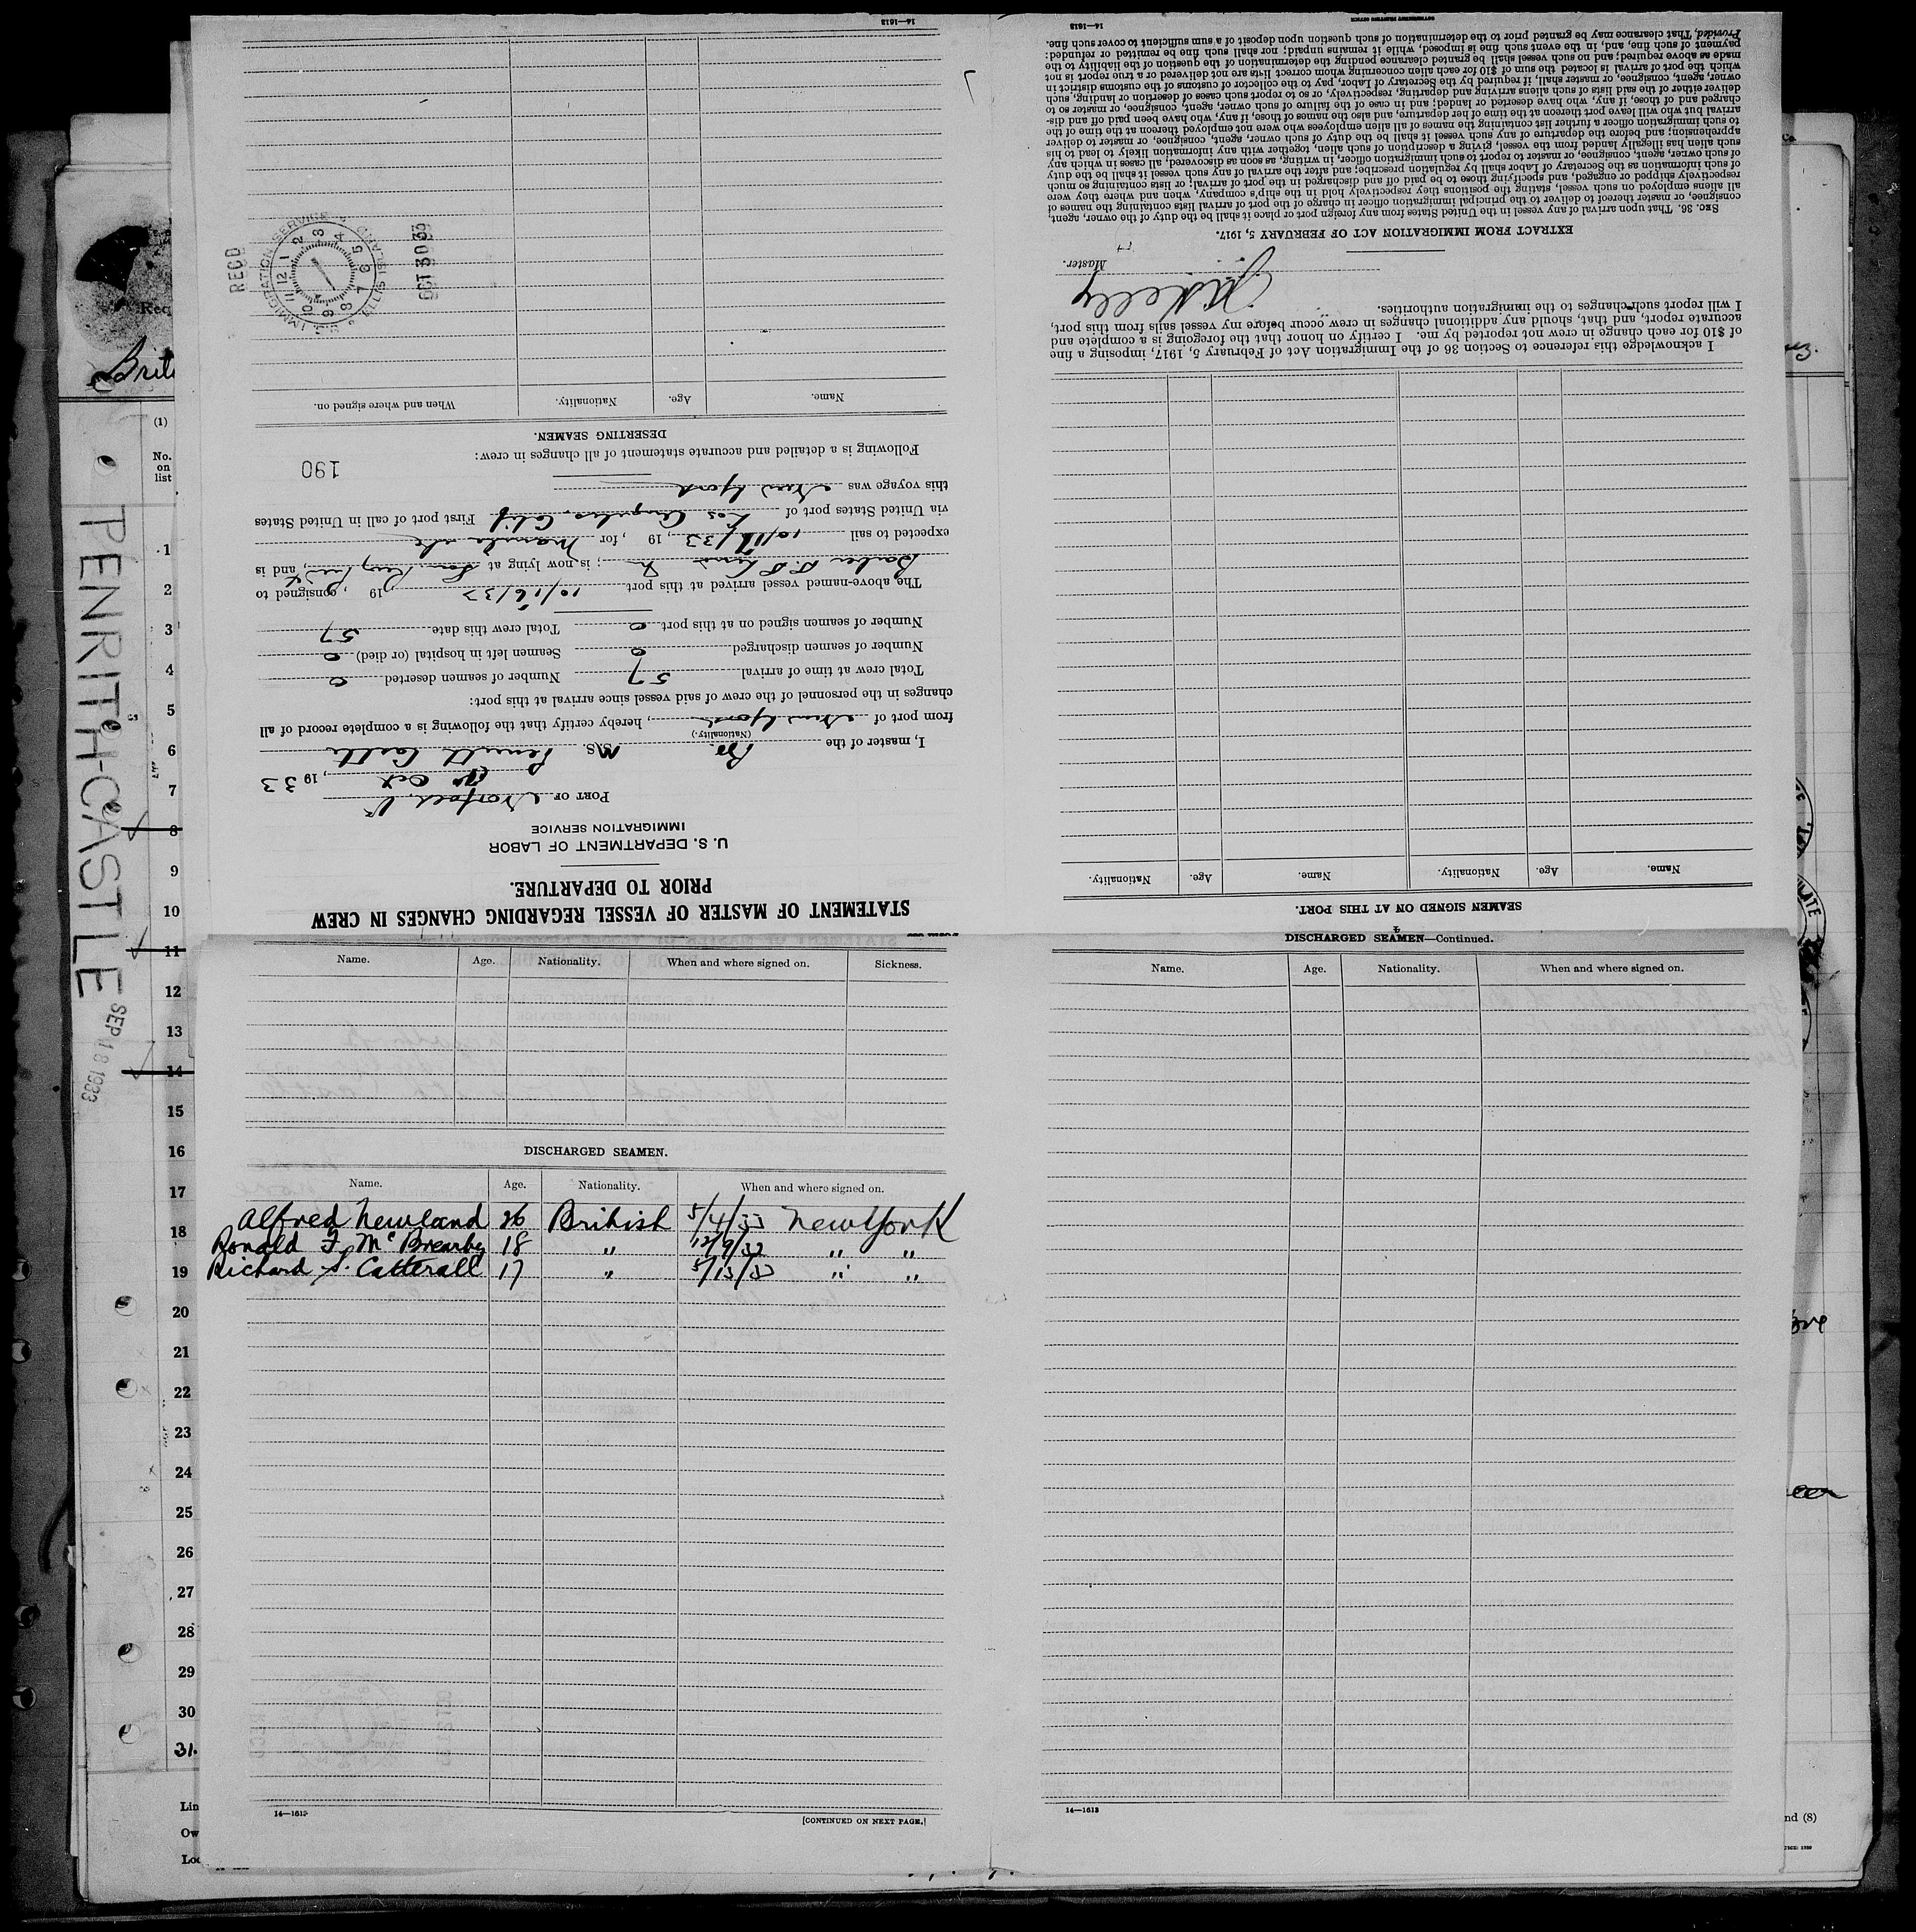 STATEMENT OF MASTER OF VESSEL REGARDING CHANGES IN CREW
PRIOR TO DEPARTURE.
U. S. DEPARTMENT OF LABOR
IMMIGRATION SERVICE
PORT OF Norfolk, Va
Oct, 1933
I, master of the Br. M/S. Penrith Castle
(Nationality.)
from port of New York, hereby certify that the following is a complete record of all
changes in the personnel of the crew of said vessel since arrival at this port:
Total crew at time of arrival 57 Number of seamen deserted 0
Number of seamen discharged 0 Seamen left in hospital (or died) 0
Number of seamen signed on at this port 0 Total crew this date 57
The above-named vessel arrived at this port 10/16/33 19 , consigned to
Barber S.S. Lines; is now lying at, and is
expected to sail 10/16/33, 19 , for Manila
via United States port of Los Angeles, Calif First port of call in United States
this voyage was New York
190
Following is a detailed and accurate statement of all changes in crew:
DESERTING SEAMEN.
Name. Age. Nationality. When and where signed on.
RECD
U.S. IMMIGRATION SERVICE
ELLIS ISLAND
1 2 3 4 5 6 7 8 9 10 11 12
OCT 30 33
14—1613
SEAMEN SIGNED ON AT THIS PORT.
Name. Age. Nationality. Name. Age. Nationality.
I acknowledge this reference to Section 36 of the Immigration Act of February 5, 1917, imposing a fine
of $10 for each change in crew not reported by me. I certify on honor that the foregoing is a complete and
accurate report, and that, should any additional changes in crew occur before my vessel sails from this port,
I will report such changes to the immigration authorities.
Master.
EXTRACT FROM IMMIGRATION ACT OF FEBRUARY 5, 1917.
SEC. 36. That upon arrival of any vessel in the United States from any foreign port or place it shall be the duty of the owner, agent,
consignee, or master thereof to deliver to the principal immigration officer in charge of the port of arrival lists containing the names of
all aliens employed on such vessel, stating the positions they respectively hold in the ship's company, when and where they were
respectively shipped or engaged, and specifying those to be paid off and discharged in the port of arrival; or lists containing so much
of such information as the Secretary of Labor shall by regulation prescribe; and after the arrival of any such vessel it shall be the duty
of such owner, agent, consignee, or master to report to such immigration officer, in writing, as soon as discovered, all cases in which any
such alien has illegally landed from the vessel, giving a description of such alien, together with any information likely to lead to his
apprehension; and before the departure of any such vessel it shall be the duty of such owner, agent, consignee, or master to deliver
to such immigration officer a further list containing the names of all alien employees who were not employed thereon at the time of the
arrival but who will leave port thereon at the time of her departure, and also the names of those, if any, who have been paid off and dis-
charged and of those, if any, who have deserted or landed; and in case of the failure of such owner, agent, consignee, or master so to
deliver either of the said lists of such aliens arriving and departing, respectively, or so to report such cases of desertion or landing, such
owner, agent, consignee, or master shall, if required by the Secretary of Labor, pay to the collector of customs of the customs district in
which the port of arrival is located the sum of $10 for each alien concerning whom correct lists are not delivered or a true report is not
made as above required; and no such vessel shall be granted clearance pending the determination of the question of the liability to the
payment of such fine, and, in the event such fine is imposed, while it remains unpaid; nor shall such fine be remitted or refunded:
Provided, That clearance may be granted prior to the determination of such question upon deposit of a sum sufficient to cover such fine.
14—1613
GOVERNMENT PRINTING OFFICE
Name. Age. Nationality. When and where signed on. Sickness.
DISCHARGED SEAMEN.
Name. Age. Nationality. When and where signed on.
Alfred Newland 26 British 5/4/33 New York
Ronald F. McBrearby 18 " 12/9/32 " "
Richard S. Catterall 17 " 5/13/33 " "
14—1613
[CONTINUED ON NEXT PAGE.]
DISCHARGED SEAMEN—Continued.
Name. Age. Nationality. When and where signed on.
14—1613
PENRITH-CASTLE
SEP 18 1933
(1)
No.
on
list
1
2
3
4
5
6
7
8
9
10
11
12
13
14
15
16
17
18
19
20
21
22
23
24
25
26
27
28
29
30
31.
nd (8)